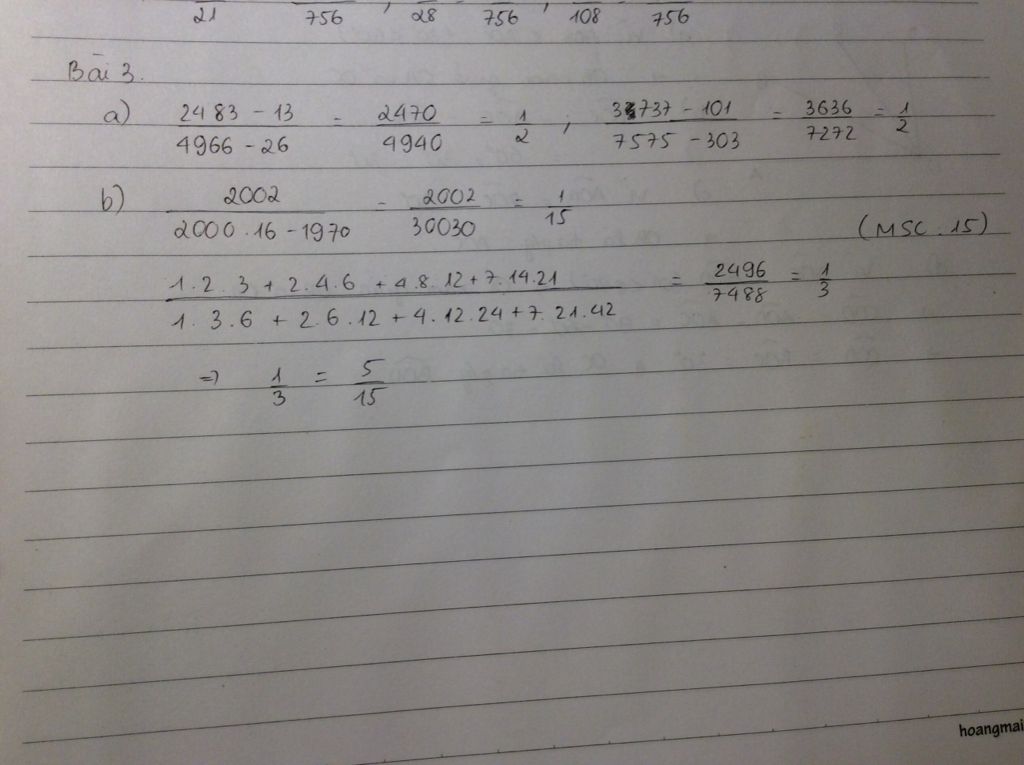 21 756 ; 28 756 , 108 756
Bài 3.
a) 2483 - 13 / 4966 - 26 = 2470 / 4940 = 1/2 ; 3737 - 101 / 7575 - 303 = 3636 / 7272 = 1/2
b) 2002 / 2000.16 - 1970 = 2002 / 30030 = 1/15
(MSC. 15)
1.2.3 + 2.4.6 + 4.8.12 + 7.14.21 / 1.3.6 + 2.6.12 + 4.12.24 + 7.21.42 = 2496 / 7488 = 1/3
=> 1/3 = 5/15
hoangmai